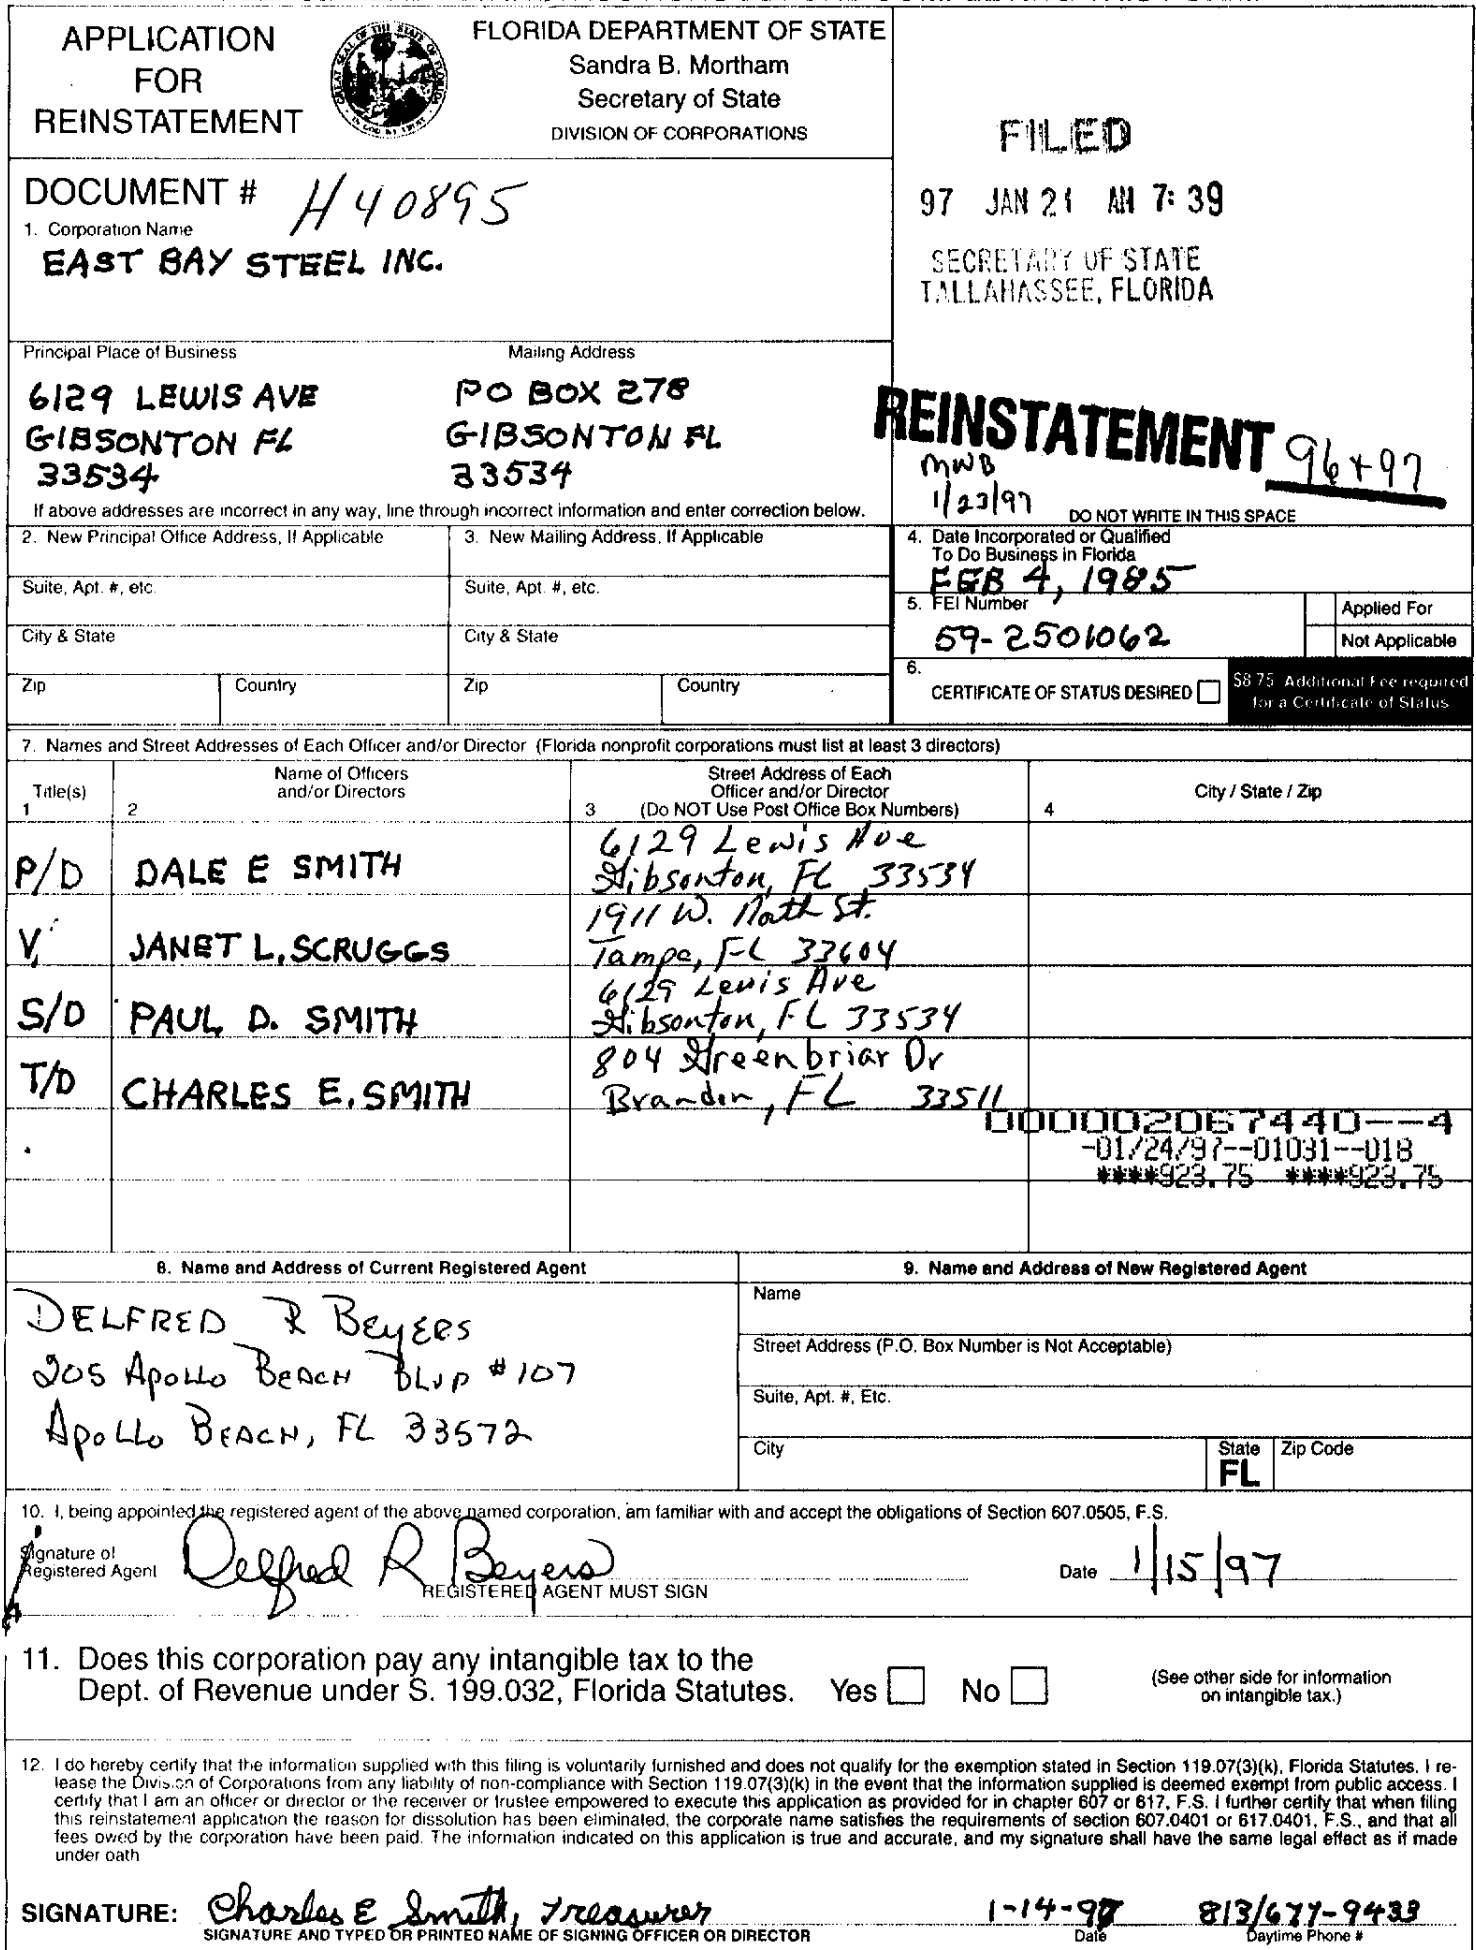 APPLICATION
FOR
REINSTATEMENT
FLORIDA DEPARTMENT OF STATE
Sandra B. Mortham
Secretary of State
DIVISION OF CORPORATIONS
FILED
97 JAN 21 AM 7:39
SECRETARY OF STATE
TALLAHASSEE, FLORIDA
DOCUMENT # H40895
1. Corporation Name
EAST BAY STEEL INC.
Principal Place of Business
6129 LEWIS AVE
GIBSONTON FL
33534
Mailing Address
PO BOX 278
GIBSONTON FL
33534
REINSTATEMENT 96+97
MWB
1/23/97
If above addresses are incorrect in any way, line through incorrect information and enter correction below.
DO NOT WRITE IN THIS SPACE
2. New Principal Office Address, If Applicable
Suite, Apt. #, etc.
City & State
Zip Country
3. New Mailing Address, If Applicable
Suite, Apt. #, etc.
City & State
Zip Country
4. Date Incorporated or Qualified
To Do Business in Florida
FEB 4, 1985
5. FEI Number
59-2501062
Applied For
Not Applicable
6.
CERTIFICATE OF STATUS DESIRED
$8.75 Additional Fee required
for a Certificate of Status
7. Names and Street Addresses of Each Officer and/or Director (Florida nonprofit corporations must list at least 3 directors)
Title(s)
1
Name of Officers
and/or Directors
2
Street Address of Each
Officer and/or Director
3 (Do NOT Use Post Office Box Numbers)
City / State / Zip
4
P/D DALE E SMITH 6129 Lewis Ave
Gibsonton, FL 33534
V, JANET L. SCRUGGS 1911 W. St.
Tampa, FL 33604
S/D PAUL D. SMITH 6129 Lewis Ave
Gibsonton, FL 33534
T/D CHARLES E. SMITH 804 Greenbriar Dr
Brandon, FL 33511
000002067440--4
-01/24/97--01031--018
****923.75 ****923.75
8. Name and Address of Current Registered Agent
DELFRED R BEYERS
205 APOLLO BEACH BLVD #107
APOLLO BEACH, FL 33572
9. Name and Address of New Registered Agent
Name
Street Address (P.O. Box Number is Not Acceptable)
Suite, Apt. #, Etc.
City State Zip Code
FL
10. I, being appointed the registered agent of the above named corporation, am familiar with and accept the obligations of Section 607.0505, F.S.
Signature of
Registered Agent Delfred R Beyers Date 1/15/97
REGISTERED AGENT MUST SIGN
11. Does this corporation pay any intangible tax to the
Dept. of Revenue under S. 199.032, Florida Statutes. Yes No
(See other side for information
on intangible tax.)
12. I do hereby certify that the information supplied with this filing is voluntarily furnished and does not qualify for the exemption stated in Section 119.07(3)(k), Florida Statutes. I re-
lease the Division of Corporations from any liability of non-compliance with Section 119.07(3)(k) in the event that the information supplied is deemed exempt from public access. I
certify that I am an officer or director or the receiver or trustee empowered to execute this application as provided for in chapter 607 or 617, F.S. I further certify that when filing
this reinstatement application the reason for dissolution has been eliminated, the corporate name satisfies the requirements of section 607.0401 or 617.0401, F.S., and that all
fees owed by the corporation have been paid. The information indicated on this application is true and accurate, and my signature shall have the same legal effect as if made
under oath
SIGNATURE: Charles E Smith, Treasurer 1-14-97 813/677-9433
SIGNATURE AND TYPED OR PRINTED NAME OF SIGNING OFFICER OR DIRECTOR Date Daytime Phone #